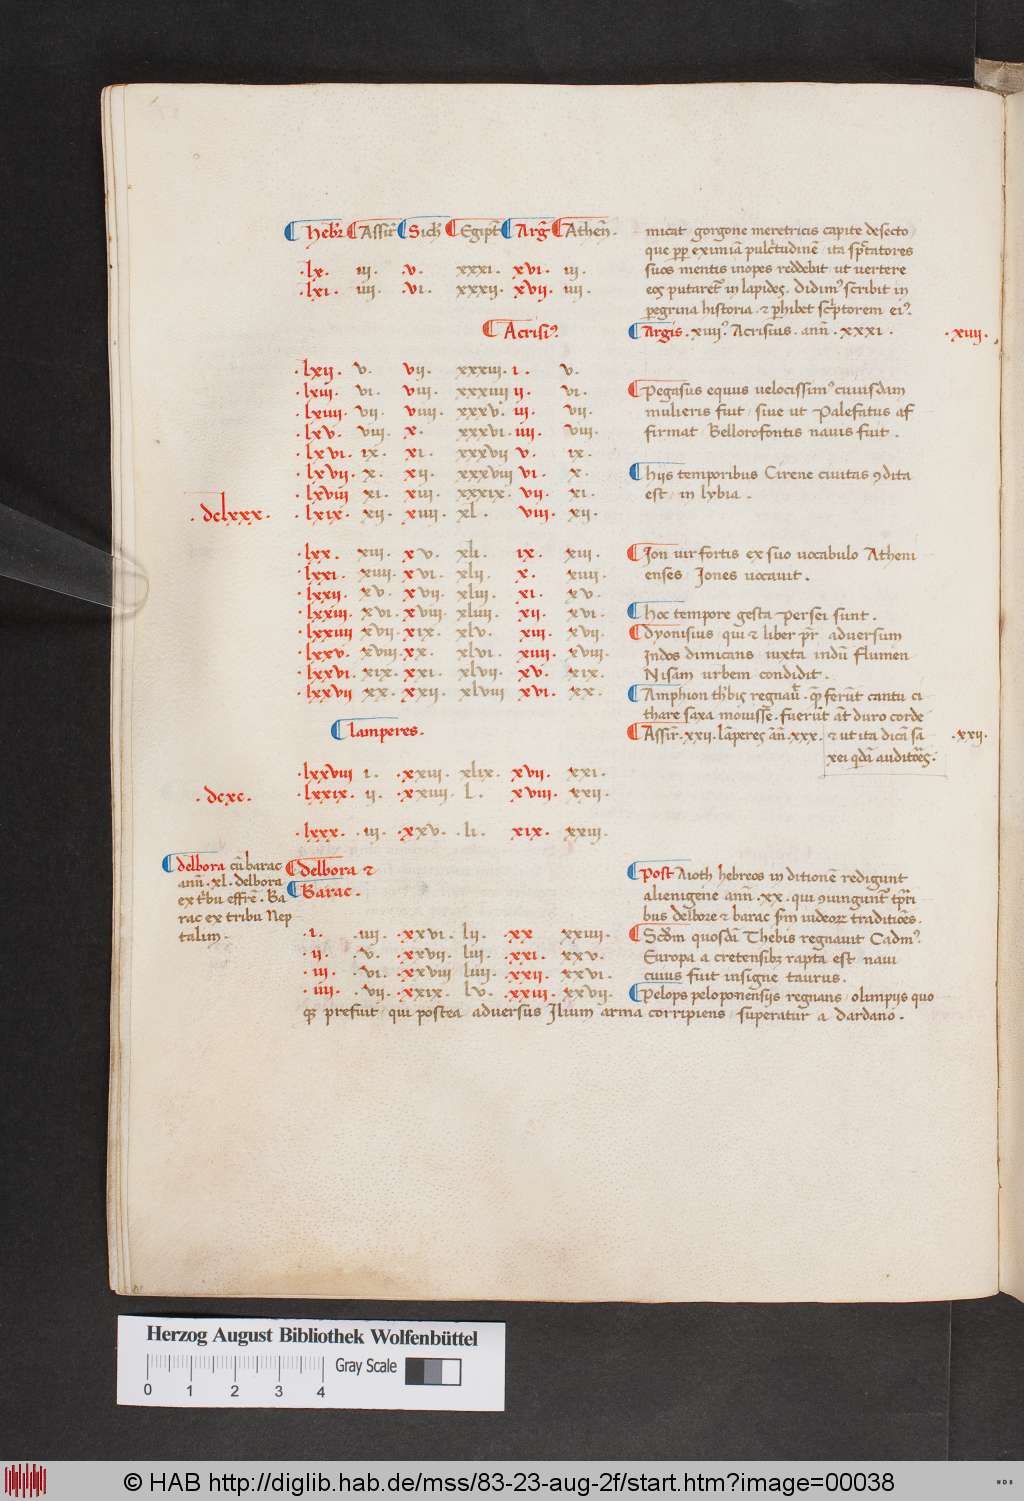 Hebr̄ Assir̄ Sich̄ Egipt̄ Arḡ Athen̄.
.lx. iii. v. xxxi. xvi. iii.
.lxi. iiii. vi. xxxii. xvii. iiii.
Acrisi⁹
.lxii. v. vii. xxxiii. i. v.
.lxiii. vi. viii. xxxiiii ii. vi.
.lxiiii vii. viiii. xxxv. iii. vii.
.lxv. viii. x. xxxvi. iiii. viii.
.lxvi. ix. xi. xxxvii v. ix.
.lxvii. x. xii. xxxviii vi. x.
.lxviii xi. xiii. xxxix. vii. xi.
. dclxxx. .lxix. xii. xiiii. xl. viii. xii.
.lxx. xiii. xv. xli. ix. xiii.
.lxxi. xiiii. xvi. xlii. x. xiiii.
.lxxii. xv. xvii. xliii. xi. xv.
.lxxiii. xvi. xviii. xliiii. xii. xvi.
.lxxiiii xvii. xix. xlv. xiii. xvii.
.lxxv. xviii. xx. xlvi. xiiii. xviii.
.lxxvi. xix. xxi. xlvii. xv. xix.
.lxxvii xx. xxii. xlviii xvi. xx.
lamperes.
.lxxviii i. .xxiii. xlix. xvii. xxi.
. dcxc. .lxxix. ii. .xxiiii. l. xviii. xxii.
.lxxx. .iii. .xxv. .li. xix. xxiii.
delbora cū barac
ann̄. xl. delbora
ex tⁱbu effrē. Ba
rac ex tribu Nep
talim.
delbora ⁊
Barac.
.i. .iiii. .xxvi. lii. .xx xxiiii.
.ii. .v. .xxvii. liii. .xxi. xxv.
.iii. .vi. .xxviii liiii. .xxii. xxvi.
.iiii. .vii. .xxix. lv. .xxiii. xxvii.
micat gorgone meretricis capite desecto
que pp̄ eximiā pulc̄tudinē ita sp̄tatores
suos mentis inopes reddebit ut vertere
eos putaret᷑ in lapides. didim⁹ scribit in
peregrina historia ⁊ phibet sc̄ptorem ei⁹.
Argis. xiiii⁹ Acrisius. ann̄. xxxi. . xiiii.
Pegasus equus velocissim⁹ cuiusdam
mulieris fuit sive ut Palefatus af
firmat Bellorofontis navis fuit.
hiis temporibus Cirene civitas ꝯdita
est in lybia.
Ion vir fortis ex suo vocabulo Atheni
enses Iones vocavit.
hoc tempore gesta Persei sunt.
dyonisius qui ⁊ liber pr̄ adversum
Indos dimicans iuxta indū flumen
Nisam urbem condidit.
Amphion thebis regnav̄. q̄ ferūt cantu ci
thare saxa movisse. fuerūt āt duro corde
Assir̄. xxii. lāperes ān̄. xxx. ⁊ ut ita dicā sa . xxii.
xei q̄dā auditōes.
Post Aioth hebreos in ditionē redigunt
alienigene ann̄. xx. qui ꝯiungunt᷑ tp̄ri
bus delbore ⁊ barac sm̄ iudeoꝝ traditiōes.
Scd̄m quosdā Thebis regnavit Cadm⁹.
Europa a cretensibꝫ rapta est navi
cuius fuit insigne taurus.
Pelops peloponensiis regnans olimpiis quo
qꝫ prefuit qui postea adversus Ilium arma corripiens superatur a dardano.
Herzog August Bibliothek Wolfenbüttel
0 1 2 3 4 Gray Scale
© HAB http://diglib.hab.de/mss/83-23-aug-2f/start.htm?image=00038